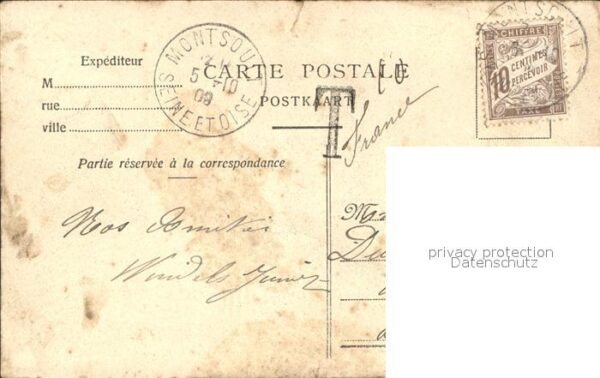 Expéditeur
M
rue
ville
MONTSOU
5 -10
09
SEINE ET OISE
CARTE POSTALE
POSTKAART
T
10
France
CHIFFRES
10 CENTIMES
À PERCEVOIR
TAXE
Partie réservée à la correspondance
Nos Amitiés
M
privacy protection
Datenschutz